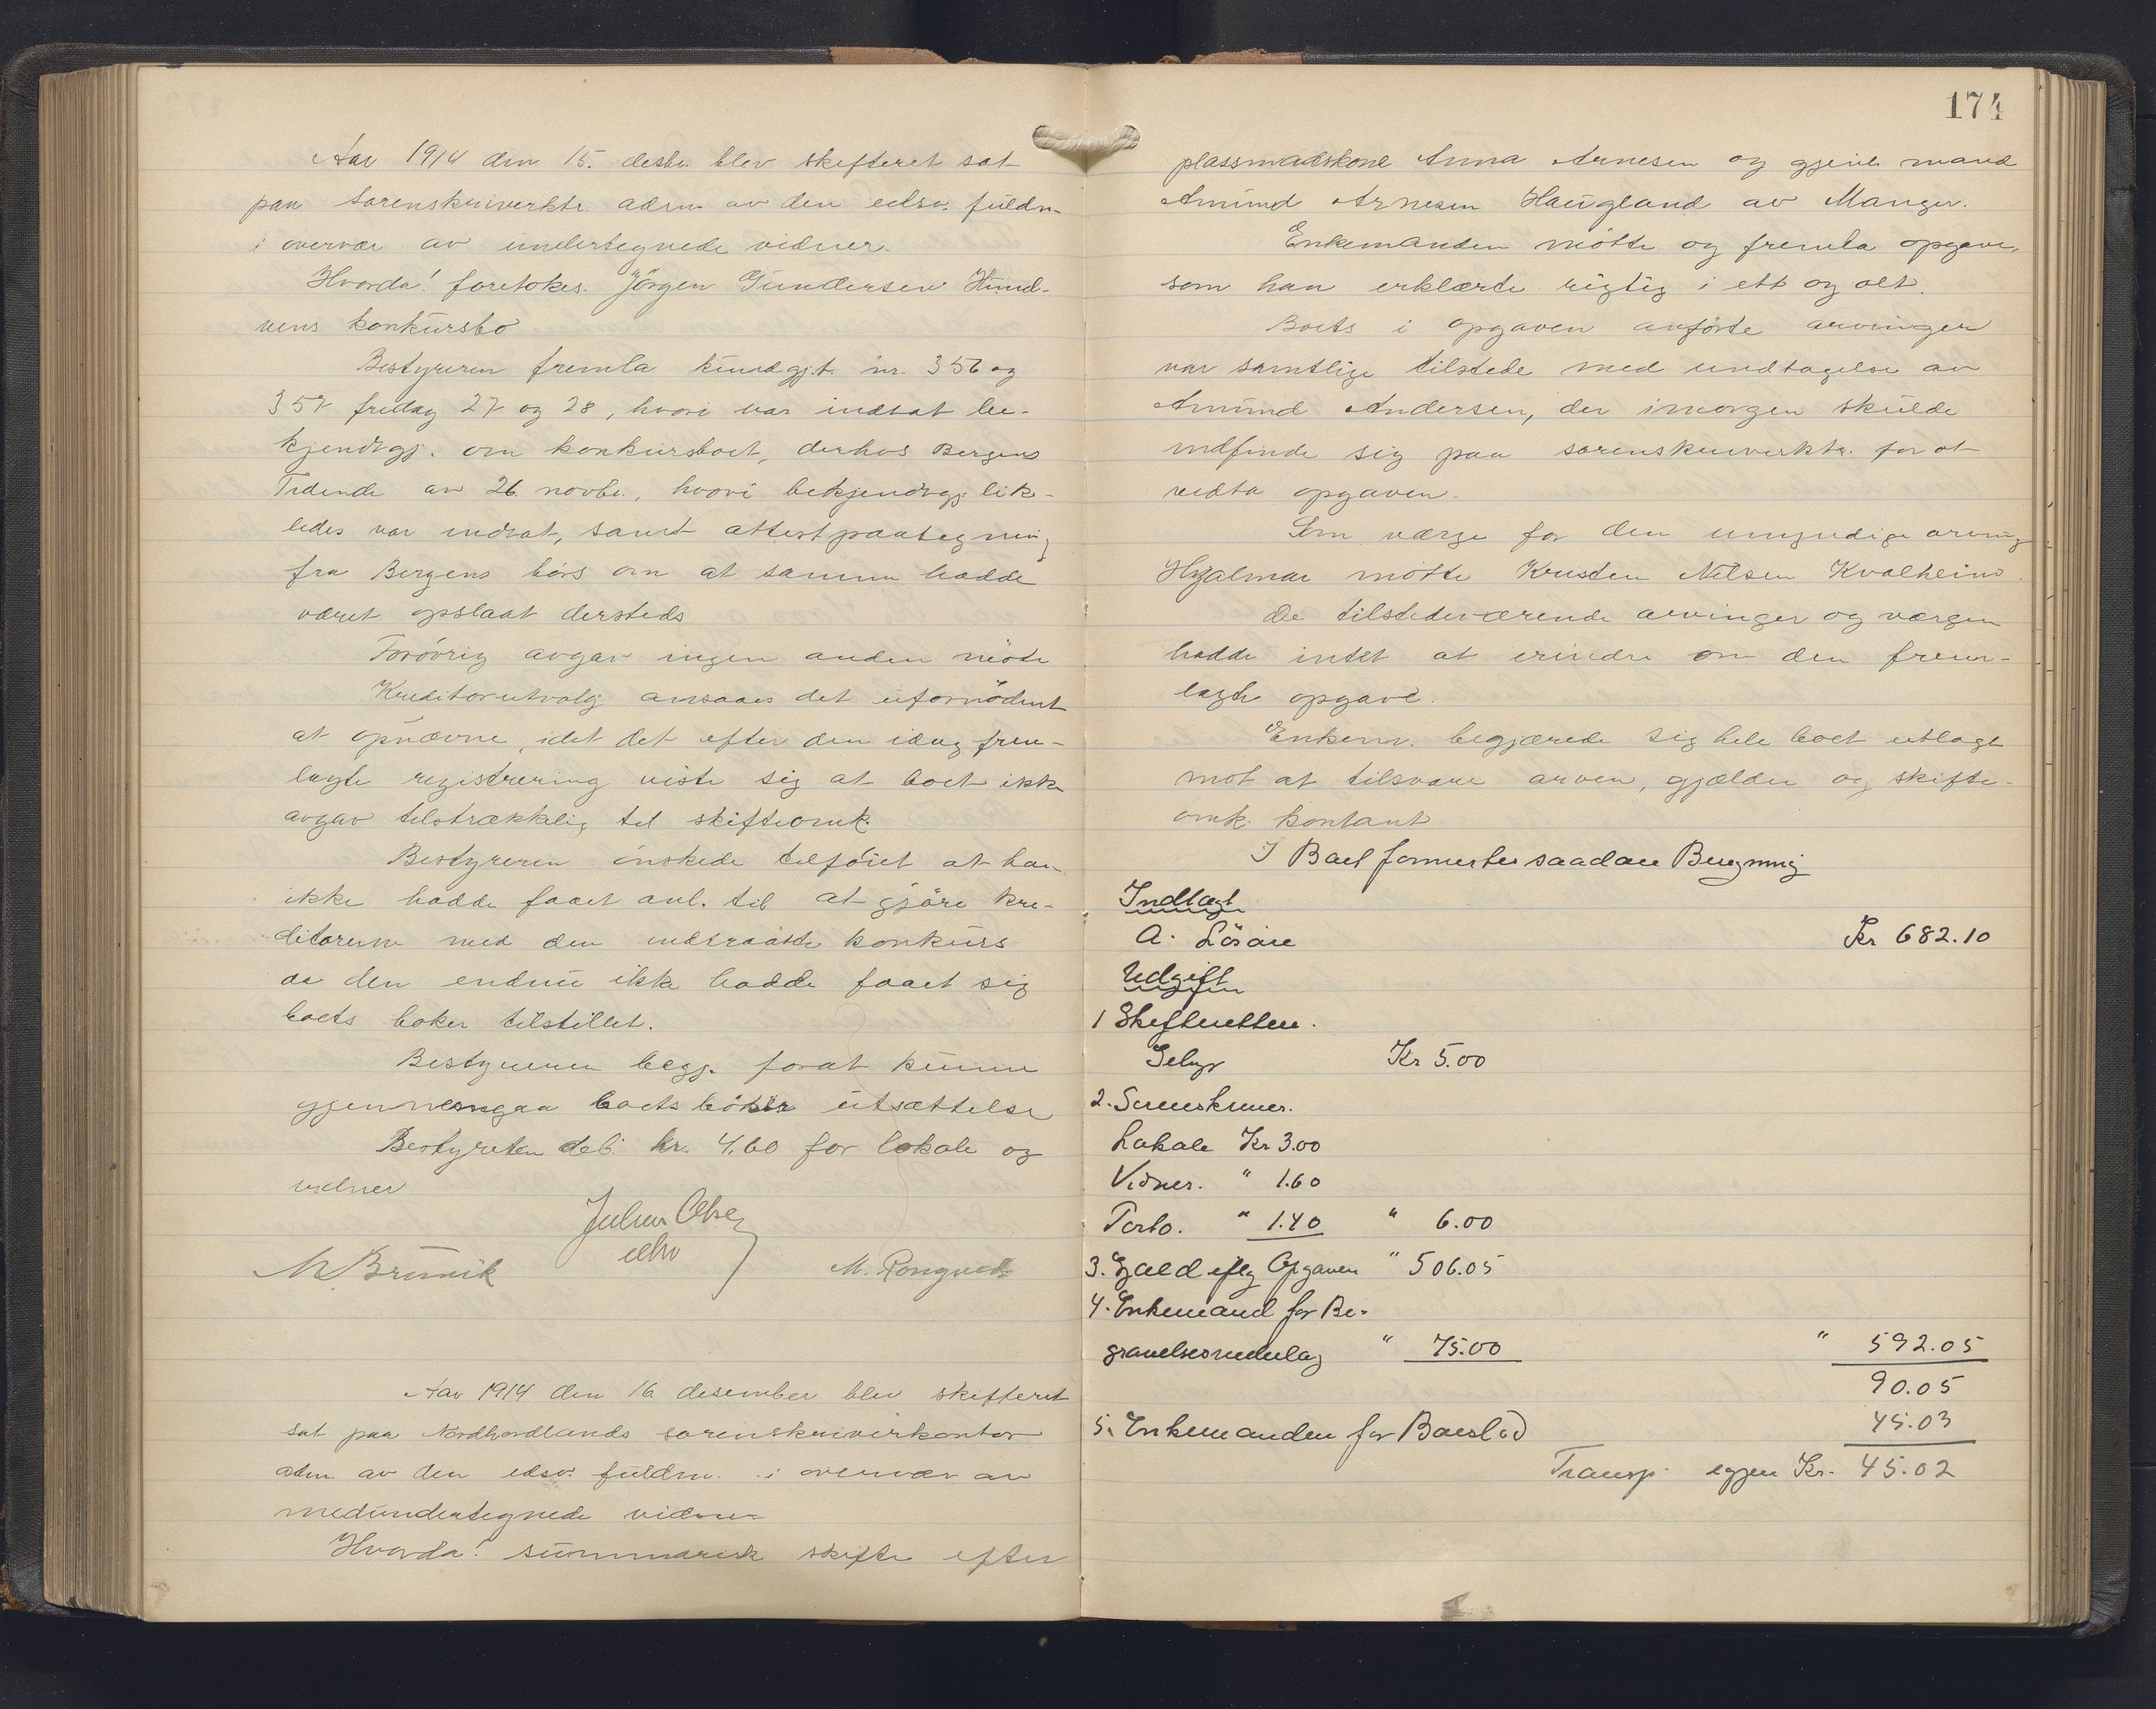 Aar 1914 den 15. desbr. blev skifteret sat
paa sorenskriverktr. adm. av den edsv. fuldm.
i overvær av undertegnede vidner.
Hvorda! foretokes. Jörgen Gundersen Hund-
vens konkursbo
Bestyreren fremla kundgj.t. nr. 356 og
357 fredag 27 og 28, hvori var indsat be-
kjendtgj. om konkursboet, derhos Bergens
Tidende av 26. novbr., hvori bekjendtgj. like-
ledes var indsat, samt attestpaategning
fra Bergens börs om at samme hadde
været opslaat dersteds
Forövrig avgav ingen anden möte
Kreditorutvalg ansaaes det ufornödent
at opnævne, idet det efter den idag frem-
lagte registrering viste sig at boet ikke
avgav tilstrækkelig til skifteomk.
Bestyreren önskede tilföiet at han
ikke hadde faaet anl. til at gjöre kre-
ditorerne med den indtraadte konkurs
da den endnu ikke hadde faaet sig
boets böker tilstillet.
Bestyreren begj. forat kunne
gjennemgaa boets böker utsættelse
Bestyreren deb. kr. 4,60 for lokale og
vidner
Julius Olsen
edsv
M. Brunvik M. Rongved
Aar 1914 den 16 desember blev skifteret
sat paa Nordhordlands sorenskriverkontor
adm. av den edsv. fuldm. i overvær av
medundertegnede vidner
Hvorda! summarisk skifte efter
174
plassmadskone Anna Arnesen og gjenl. mand
Amund Arnesen Haugland av Manger.
Enkemanden mötte og fremla opgave,
som han erklærte rigtig i ett og alt.
Boets i opgaven anförte arvinger
var samtlige tilstede med undtagelse av
Amund Andersen, der imorgen skulde
indfinde sig paa sorenskriverktr. for at
vedta opgaven.
Som værge for den umyndige arving
Hjalmar mötte Kristen Nilsen Kvalheim.
De tilstedeværende arvinger og værgen
hadde intet at erindre om den frem-
lagte opgave.
Enkem. begjærede sig hele boet utlagt
mot at tilsvare arven, gjælden og skifte-
omk. kontant
I Boet formertes saadan Beregning
Indtægt
A. Lösöre Kr 682.10
Udgift
1 Skifteretten.
Gebyr Kr 5.00
2. Sorenskriver.
Lokale Kr 3.00
Vidner. " 1.60
Porto. " 1.40 " 6.00
3. Gjæld iflg Opgaven " 506.05
4. Enkemand for Be-
gravelsesomkostn. " 75.00 " 592.05
90.05
5. Enkemanden for Boeslod 45.03
Transp. igjen Kr. 45.02